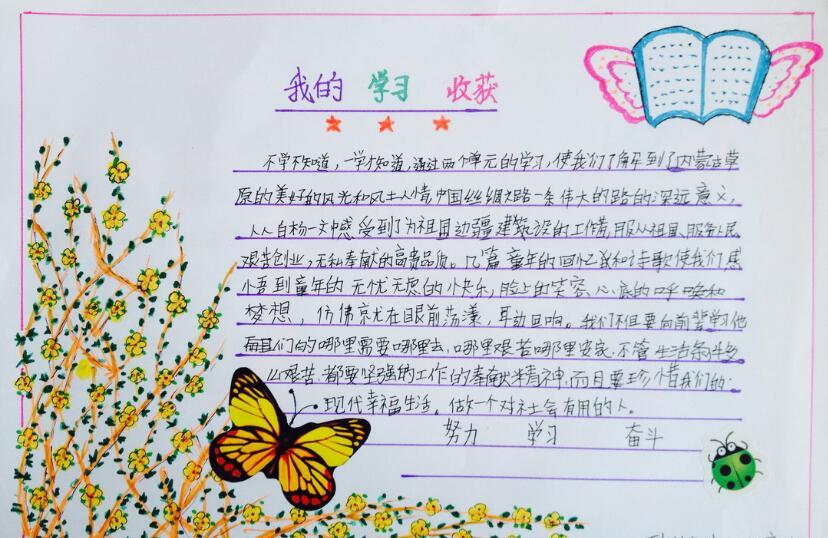 我的 学习 收获
不学不知道，一学才知道，通过两个单元的学习，使我们了解到了内蒙古草
原的美好的风光和风土人情，中国丝绸之路一条伟大的路的深远意义，
从白杨一文中感受到了为祖国边疆建筑设的工作者，服从祖国、服务人民
艰苦创业，无私奉献的高贵品质。几篇童年的回忆录和诗歌使我们感
悟到童年的无忧无虑的快乐，脸上的笑容、心底的呼唤和
梦想，仿佛就在眼前荡漾，耳边回响。我们不但要向前辈学习他
们的哪里需要哪里去，哪里艰苦哪里安家，不管生活条件多
么艰苦都要坚强的工作的奉献精神，而且要珍惜我们的
现代幸福生活。做一个对社会有用的人。
努力 学习 奋斗